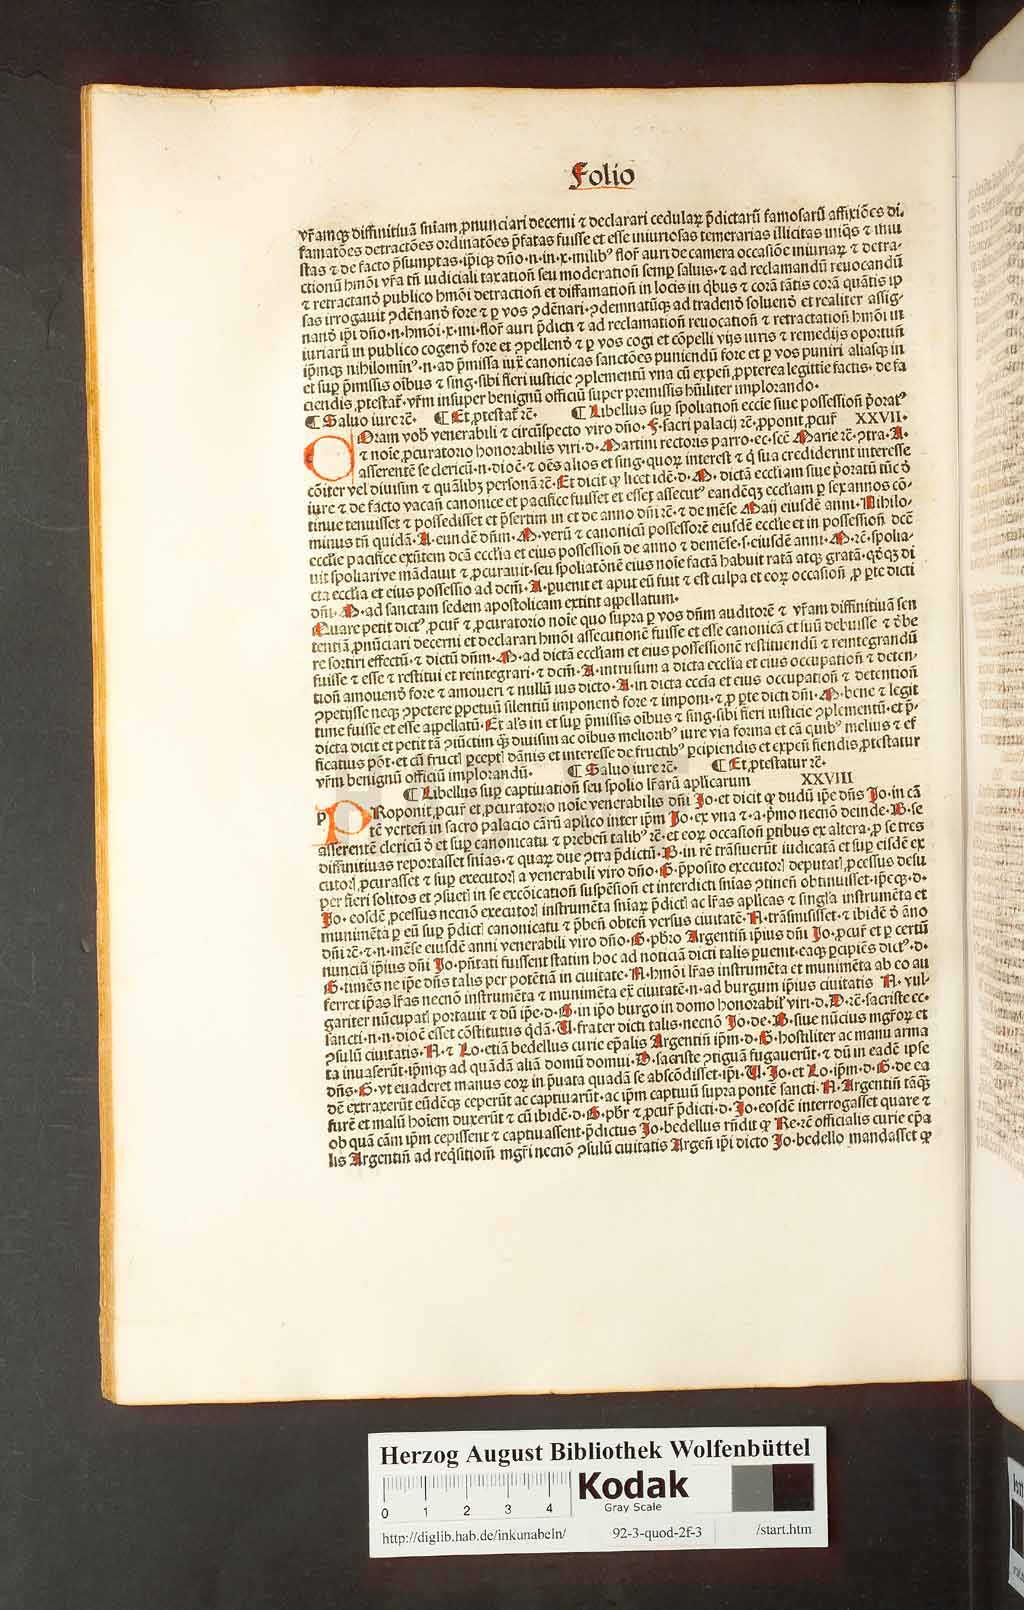 Folio
vr̄amqꝫ diffinitiuã sniam ꝓnunciari decerni ⁊ declarari cedulaꝝ p̄dictarũ famosarũ affixiões di-
famatões detractões ordinatões p̄fatas fuisse et esse iniuriosas temerarias illicitas iniq̃s ⁊ iniu
stas ⁊ de facto p̄sumptas·ip̄iqꝫ dño·n·in·x·milibꝰ flor̄ auri de camera occasiõe iniuriaꝝ ⁊ detra-
ctionũ hmõi vr̄a tñ iudiciali taxation̄ seu moderation̄ semꝑ saluis·⁊ ad reclamandũ reuocandũ
⁊ retractanď publico hmõi detraction̄ et diffamation̄ in locis in q̇bus ⁊ corã tãtis corã quãtis ip
sas irrogauit ↄdẽnanď fore ⁊ ꝑ vos ↄdẽnari·ↄdemnatũqꝫ ad tradenď soluenď et realiter assig-
nanď ip̄i dño·n·hmõi·x·mi·flor̄ auri p̄dicti ⁊ ad reclamation̄ reuocation̄ ⁊ retractation̄ hmõi in
iuriarũ in publico cogenď fore et ↄpellenď ⁊ ꝑ vos cogi et cõpelli vijs iuris ⁊ remedijs oportun̄
ip̄mqꝫ nihilominꝰ·n·ad p̄missa iux̃ canonicas sanctões puniendũ fore et ꝑ vos puniri aliasqꝫ in
et suꝑ p̄missis oĩbus ⁊ sing·sibi fieri iusticie ↄplementũ vna cũ expen̄ ꝓpterea legittie factis·de fa
ciendis ꝓtestat̄·vr̄m insuper benignũ officiũ super premissis hũiliter implorando·
¶ Saluo iure rc̄· ¶ Et ꝓtestat̄ rc̄· ¶ Libellus suꝑ spoliation̄ eccie siue possession̄ p̄oratꝰ
COram vob̄ venerabili ⁊ circũspecto viro dño·F·sacri palacij rc̄·ꝓponit ꝓcur̄ XXVII·
⁊ noĩe ꝓcuratorio honorabilis viri·d·Martini rectoris parro·ec·scẽ Marie rc̄·ↄtra·A·
asserentẽ se clericũ·n·dioč·⁊ oẽs alios et sing·quoꝝ interest ⁊ q̇ sua crediderint interesse
cõiter vel diuisim ⁊ quãlibꝫ personã rc̄·Et dicit ꝙ licet idẽ·d·M·dictã eccliam siue p̄oratũ tũc ď
iure ⁊ de facto vacan̄ canonice et pacifice fuisset et esset assecutꝰ eandẽqꝫ eccliam ꝑ sex annos cõ-
tinue tenuisset ⁊ possedisset et p̄sertim in et de anno dñi rc̄·⁊ de mẽse Maij eiusdẽ anni·Nihilo-
minus tñ quidã·A·eundẽ dñm·M·verũ ⁊ canonicũ possessorẽ eiusdẽ ecclie et in possession̄ dcẽ
ecclie pacifice exñtem dcã ecclia et eius possession̄ de anno ⁊ demẽse·s·eiusdẽ anni·M·rc̄·spolia-
uit spoliariue mãdauit ⁊ ꝓcurauit·seu spoliatõnẽ eius noĩe factã habuit ratã atqꝫ gratã·qďqꝫ di
cta ecclia et eius possessio ad dcm̄·A·ꝑuenit et aput eũ fuit ⁊ est culpa et eoꝝ occasion̄ ꝓ ꝑte dicti
dñi·M·ad sanctam sedem apostolicam extitit appellatum·
Quare petit dictꝰ ꝓcur̄ ⁊ ꝓcuratorio noĩe quo supra ꝑ vos dñm auditorẽ ⁊ vr̄am diffinitiuã sen
tentiã ꝓnũciari decerni et declarari hmõi assecutionẽ fuisse et esse canonicã et suũ debuisse ⁊ ďbe
re sortiri effectũ·⁊ dictũ dñm·M·ad dictã eccliam et eius possessionẽ restituendũ ⁊ reintegrandũ
fuisse ⁊ esse ⁊ restitui et reintegrari·⁊ dcm̄·A·intrusum a dicta ecclia et eius occupation̄ ⁊ deten-
tion̄ amouenď fore ⁊ amoueri ⁊ nullũ ius dicto·A·in dicta eccia et eius occupation̄ ⁊ detention̄
ↄpetijsse neqꝫ ↄpetere ꝑpetuũ silentiũ imponenď fore ⁊ imponi·⁊ ꝓ ꝑte dicti dñi·M·bene ⁊ legit
time fuisse et esse appellatũ·Et als in et suꝑ p̄missis oĩbus ⁊ sing·sibi fieri iusticie ↄplementũ·et p̄-
dicta dicit et petit tã ↄiũctim q̃ꝫ diuisim ac oĩbus meliorìbꝰ iure via forma et cã quibꝰ melius ⁊ ef
ficatius põt·et cũ fructꝭ ꝑceptꝭ dãnis et interesse de fructibꝰ ꝑcipiendis et expen̄ fiendis ꝓtestatur
vr̄m benignũ officiũ implorandũ· ¶ Saluo iure rc̄· ¶ Et ꝓtestatur rc̄·
¶ Libellus suꝑ captiuation̄ seu spolio lr̄arũ aplicarum XXVIII
PRoponit ꝓcur̄ et ꝓcuratorio noĩe venerabilis dñi Jo·et dicit ꝙ dudũ ip̄e dñs Jo·in cã
tẽ verten̄ in sacro palacio cãrũ aplico inter ip̄m Jo·ex vna ⁊·a·p̄mo necnõ deinde·B·se
asserentẽ clericũ ď et suꝑ canonicatu ⁊ prebeñ talibꝰ rc̄·et eoꝝ occasion̄ ꝑtibus ex altera·ꝓ se tres
diffinitiuas reportasset snias·⁊ quaꝝ due ↄtra p̄dictũ·B·in rẽ trãsiuerũt iudicatã et suꝑ eisdẽ ex
cutorꝭ ꝓcurasset ⁊ suꝑ executorꝭ a venerabili viro dño·G·p̄posito executorꝭ deputatꝭ ꝓcessus desu
per fieri solitos et ↄsuetꝭ in se excõication̄ suspẽsion̄ et interdicti snias ↄtinen̄ obtinuisset·ip̄eqꝫ·d·
Jo·eosdẽ ꝓcessus necnõ executorꝭ instrumẽta sniaꝝ p̄dictꝭ ac lr̄as aplicas ⁊ singl'a instrumẽta et
munimẽta ꝑ eũ suꝑ p̄dictꝭ canonicatu ⁊ p̄ben̄ obten̄ versus ciuitatẽ·A·trãsmisisset·⁊ ibidẽ ď ãno
dñi rc̄·⁊·n·mẽse eiusdẽ anni venerabili viro dño·G·pb̄ro Argentin̄ ip̄ius dñi Jo·ꝓcur̄ et ꝑ certũ
nunciũ ip̄ius dñi Jo·pñtati fuissent statim hoc ad noticiã dicti talis ꝑuenit·eaqꝫ ꝑcipiẽs dictꝰ·d·
G·timẽs ne ip̄e dñs talis per potẽtiã in ciuitate·A·hmõi lr̄as instrumẽta et munimẽta ab eo au
ferret ip̄as lr̄as necnõ instrumẽta ⁊ munimẽta ex̃ ciuitatẽ·n·ad burgum ip̄ius ciuitatis A·vul-
gariter nũcupatꝭ portauit ⁊ dũ ip̄e·d·G·in ip̄o burgo in domo honorabil' viri·d·D·rc̄·sacriste ec-
sancti·n·n·dioč esset cõstitutus q̇dã·U·frater dicti talis·necnõ Jo·de·B·siue nũcius mgr̄oꝝ et
ↄsulũ ciuitatis·A·⁊ Lo·etiã bedellus curie ep̄alis Argentin̄ ip̄m·d·G·hostiliter ac manu arma
ta inuaserũt·ip̄mqꝫ ad quãdã aliã domũ domui·D·sacriste ↄtiguã fugauerũt·⁊ dũ in eadẽ ip̄se
dñs·G·vt euaderet manus eoꝝ in p̄uata quadã se abscõdisset·ip̄i·U·Jo·et Lo·ip̄m·d·G·de ea
dẽ extraxerũt eũdẽqꝫ ceperũt ac captiuarũt·ac ip̄m captiuũ supra pontẽ sancti·A·Argentin̄ tãq̃ꝫ
furẽ et malũ hoĩem duxerũt ⁊ cũ ibidẽ·d·G·pb̄r ⁊ ꝓcur̄ p̄dicti·d·Jo·eosdẽ interrogasset quare ⁊
ob quã cãm ip̄m cepissent ⁊ captiuassent·p̄dictus Jo·bedellus rñdit ꝙ Re·rc̄ officialis curie ep̄a
lis Argentin̄ ad reqͥsitiom̄ mgr̄i necnõ ↄsulũ ciuitatis Argen̄ ip̄i dicto Jo·bedello mandasset ꝙ
Herzog August Bibliothek Wolfenbüttel
Kodak
Gray Scale
0 1 2 3 4
http://diglib.hab.de/inkunabeln/ 92-3-quod-2f-3 /start.htm